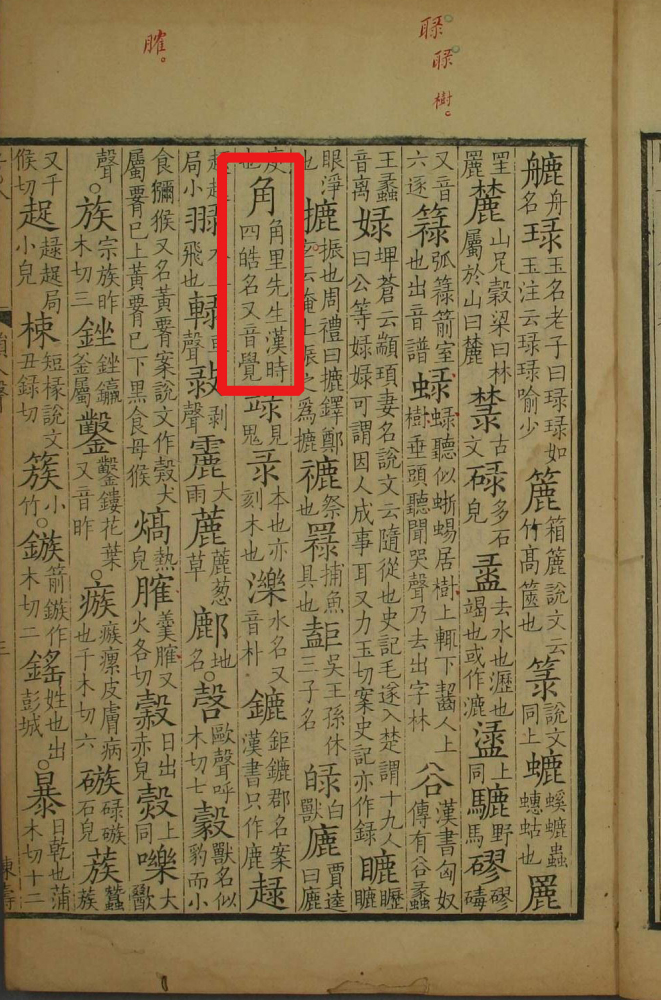 舟名琭玉名老子曰琭琭如玉注云琭琭喻少簏箱簏說文云竹高篋也箓說文同上螰螇螰蟲蟪蛄也
麓山足穀梁曰林屬於山曰麓古文碌多石皃盝去水也瀝也竭也或作漉上同騼野馬磟磟碡
又音六逐簶弧簶箭室也出音譜聽似蜥蜴居樹上輒下齧人上樹垂頭聽聞哭聲乃去出字林谷漢書匈奴傳有谷蠡
王蠡音離娽埤蒼云顓頊妻名說文云隨從也史記毛遂入楚謂十九人曰公等娽娽可謂因人成事耳又力玉切案史記亦作録
眼淨也摝振也周禮曰摝鐸鄭玄云掩上振之為摝祭也捕魚具也吳王孫休三子名白獸鹿賈逵曰鹿
也角角里先生漢時四皓名又音覺見鬼录刻木也濼水名又音朴鏕鉅鏕郡名案漢書只作鹿趢
局小飛也聲剥聲大雨蔍蔍葱草地名歐聲呼木切七獸名似豹而小
食獼猴又名黃案說文作犬屬已上黃已下黑食母猴熇熱皃臛羹臛又火各切日出赤皃上同嚛大歠
聲。族宗族昨木切三銼銼鑼釜屬鑿鑿鏤花葉又音昨。瘯瘯瘰皮膚病也千木切六石皃蔟蠶蔟
又千候切趗趢趗局小皃短椽說文丑録切簇小竹。鏃箭鏃作木切二姓也出彭城。暴日乾也蒲木切十二
樹。
臛。